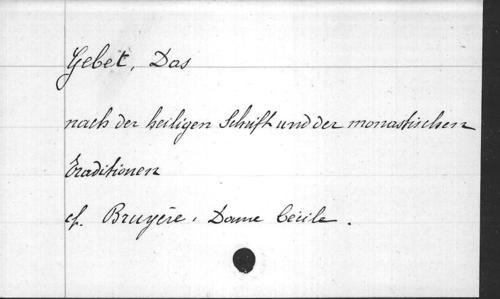 Gebet, Das
nach der heiligen Schrift und der monastischen
Traditionen
cf. Bruyère, Dame Cécile.